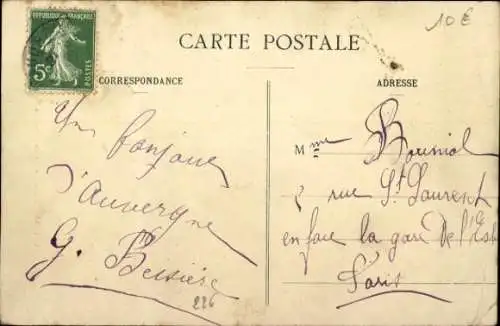 10€
REPUBLIQUE FRANÇAISE
5c
POSTES
CARTE POSTALE
CORRESPONDANCE
ADRESSE
Un bonjour
d'Auvergne
G. Bessière
226
Mme Bourniol
2 rue St Laurent
en face la gare De l'Est
Paris